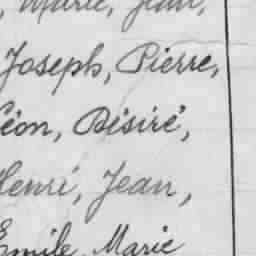 , Marie, Jean,
Joseph, Pierre,
Léon, Désiré,
Henri, Jean,
Emile Marie